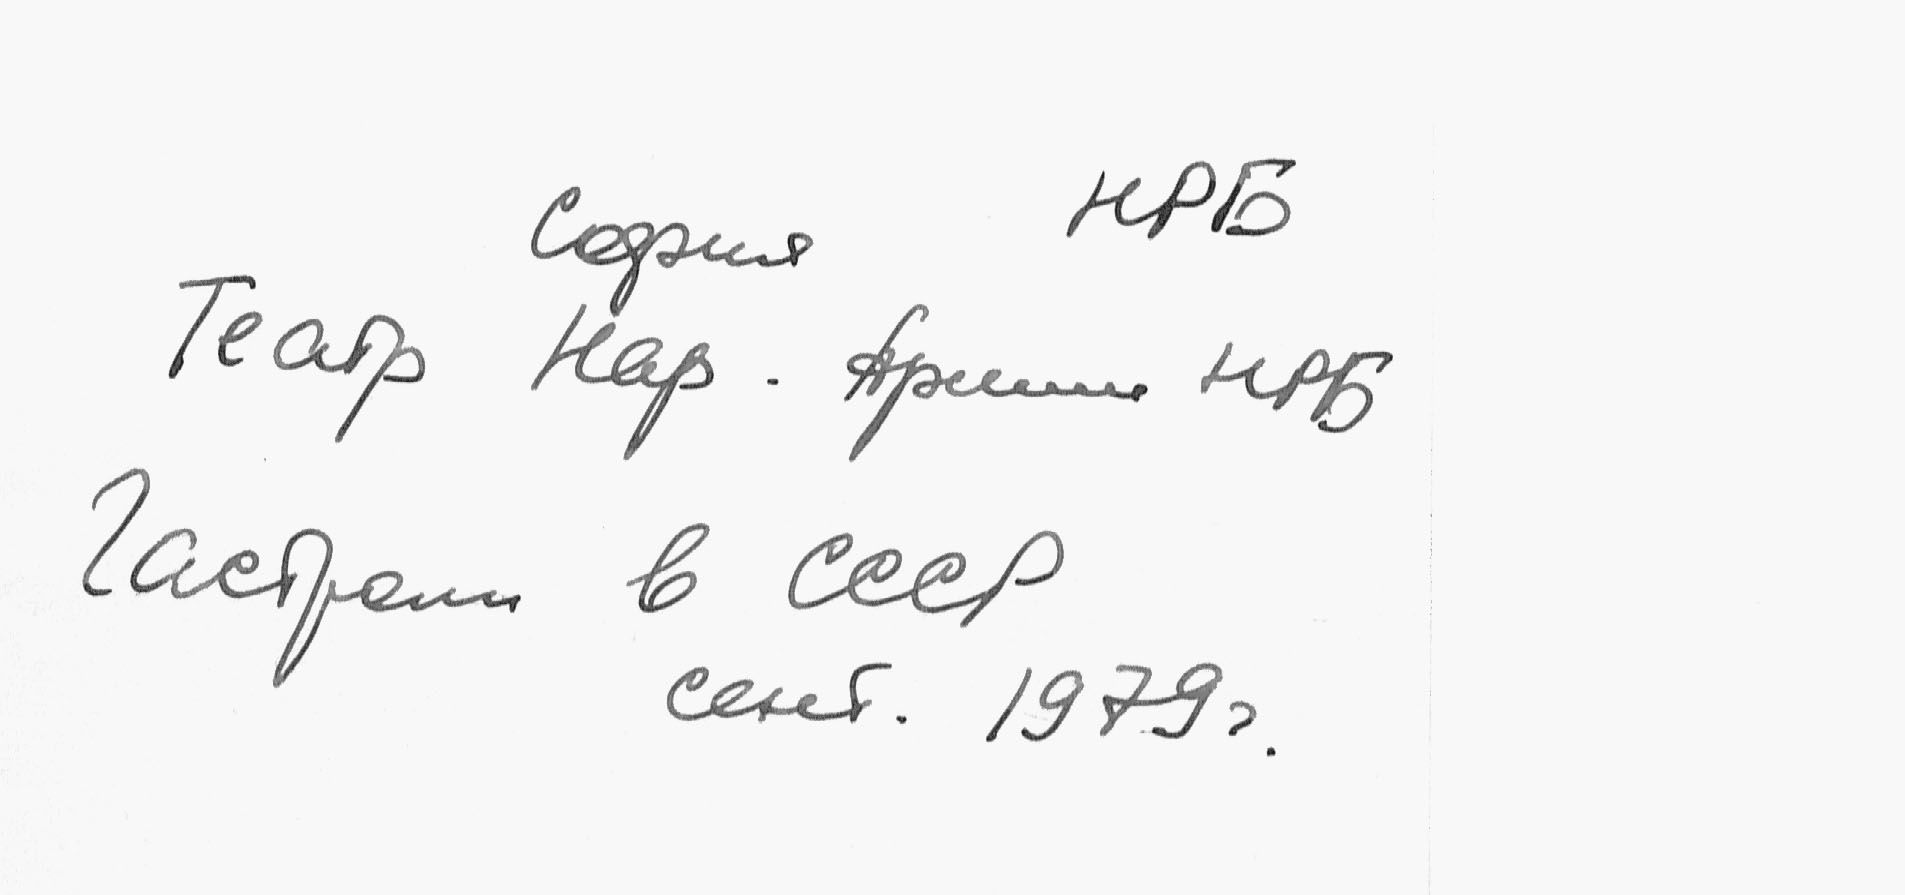 София НРБ
Театр Нар. Армии НРБ
Гастроли в СССР
сент. 1979г.